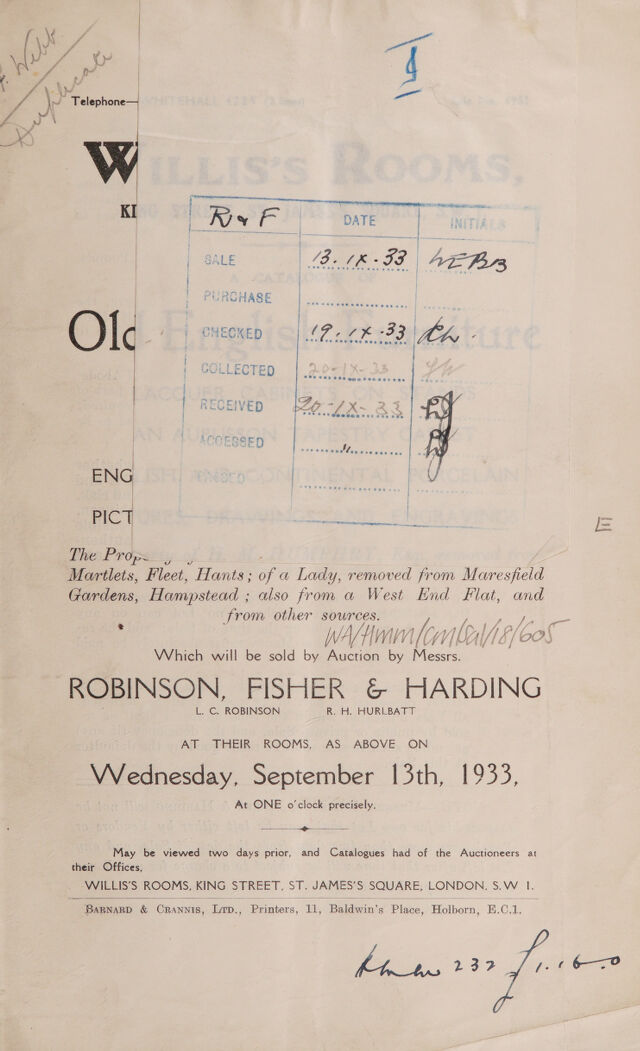 F. Webb
Duplicate
I
Telephone—
W
WILLIS'S ROOMS,
KI
R & F DATE INITIALS
SALE 13.IX.33 WEBB
PURCHASE
CHECKED 19.IX.33
Old
COLLECTED 20-IX-33
RECEIVED 20-IX-33
ACCESSED "
ENG
PICT
E
The Prop
Martlets, Fleet, Hants; of a Lady, removed from Maresfield
Gardens, Hampstead; also from a West End Flat, and
from other sources.
WA/HMM/CM/Sal/18/605
Which will be sold by Auction by Messrs.
ROBINSON, FISHER & HARDING
L. C. ROBINSON R. H. HURLBATT
AT THEIR ROOMS, AS ABOVE ON
Wednesday, September 13th, 1933,
At ONE o'clock precisely.
May be viewed two days prior, and Catalogues had of the Auctioneers at
their Offices,
WILLIS'S ROOMS, KING STREET, ST. JAMES'S SQUARE, LONDON, S.W 1.
BARNARD & CRANNIS, LTD., Printers, 11, Baldwin's Place, Holborn, E.C.1.
232 £1.16.0